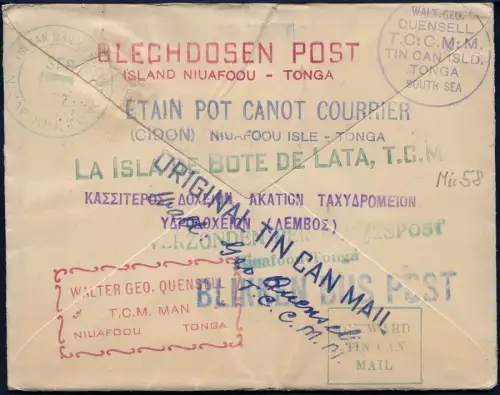 TIN CAN MAIL
SEP
NIAFOOU
WALT. GEO.
QUENSELL
T.: C.: M.: M.
TIN CAN ISLD.
TONGA
SOUTH SEA
BLECHDOSEN POST
ISLAND NIUAFOOU - TONGA
ETAIN POT CANOT COURRIER
(CIDON) NIUAFOOU ISLE - TONGA
LA ISLA DE BOTE DE LATA, T.C.M
Mi: 58
ΚΑΣΣΙΤΕΡΟΣ ΔΟΧΕΙΟΝ, ΑΚΑΤΙΟΝ ΤΑΧΥΔΡΟΜΕΙΟΝ
ΥΔΡΟΔΟΧΕΙΟΝ (ΛΕΜΒΟΣ)
VERZONDEN PER
POST
Niuafoou Tonga
ORIGINAL TIN CAN MAIL
BLIKKEN BUS POST
Walt. Geo Quensell
T.C.C.M.M.
WALTER GEO. QUENSELL
T.C.M. MAN
NIUAFOOU TONGA
ONWARD
TIN CAN
MAIL